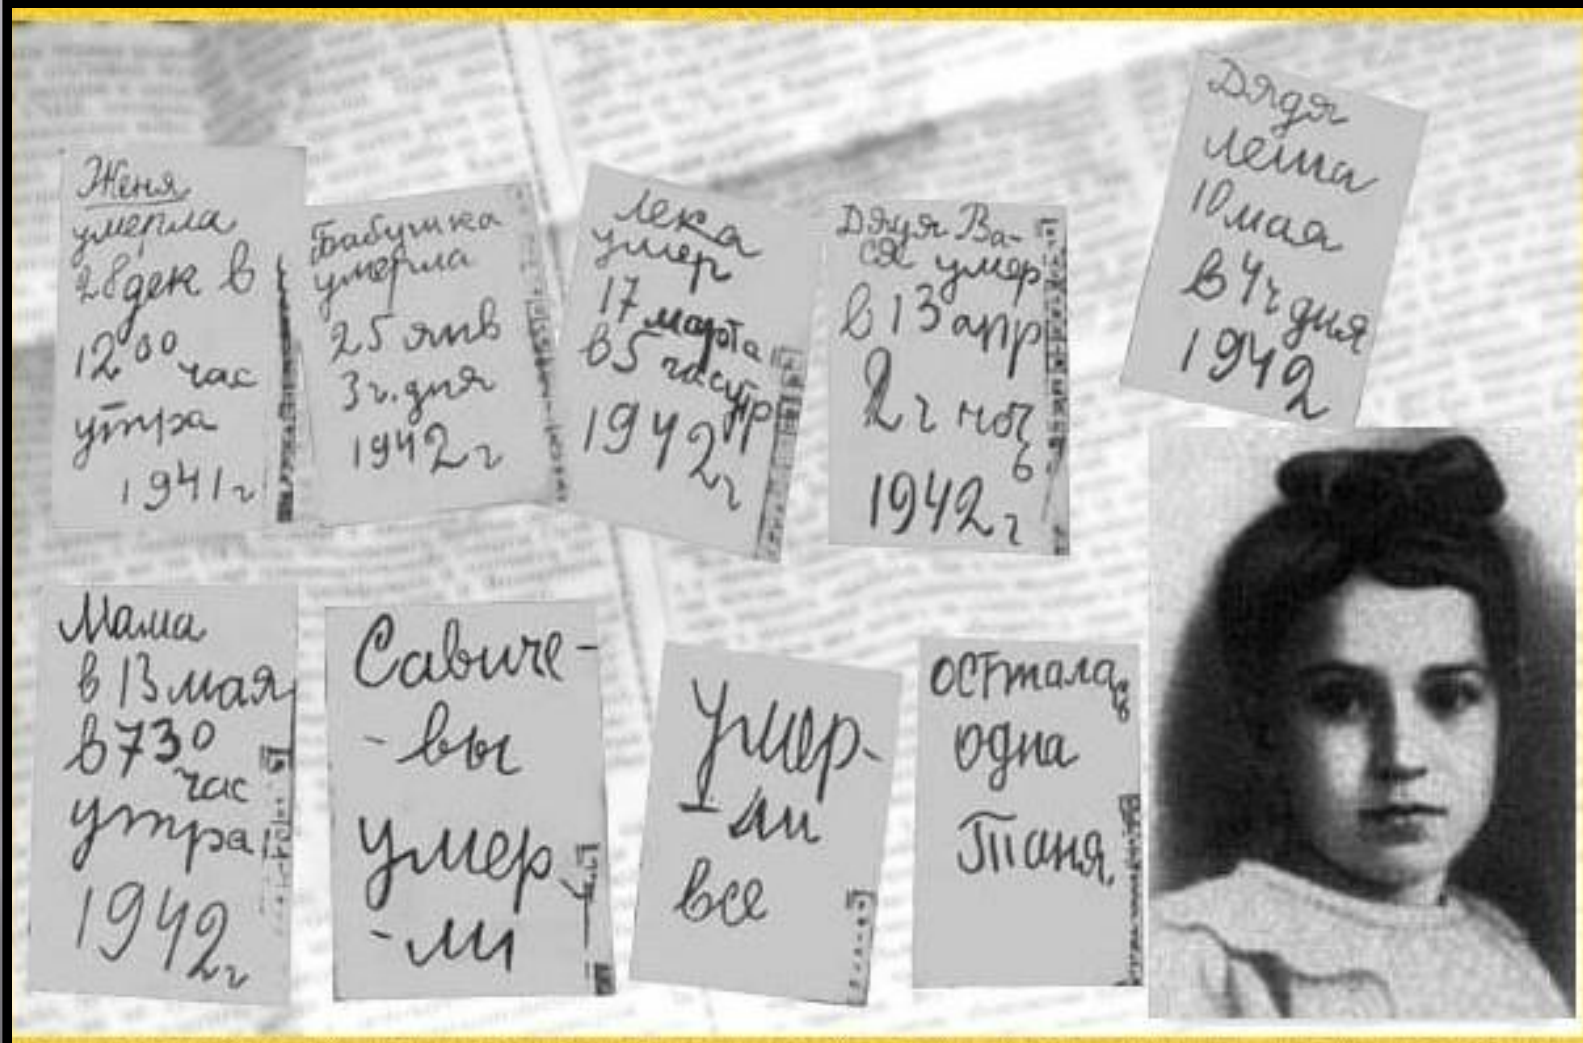 Женя
умерла
28 дек в
12⁰⁰ час
утра
1941 г
Бабушка
умерла
25 янв
3 ч. дня
1942 г
Лека
умер
17 марта
в 5 час утр
1942 г
Дядя Ва-
ся умер
в 13 апр
2 ч ночь
1942 г
Дядя
Леша
10 мая
в 4 ч дня
1942
Мама
в 13 мая
в 7 30
час
утра
1942 г
Савиче-
-вы
умер
-ли
Умер-
-ли
все
Осталась
одна
Таня.